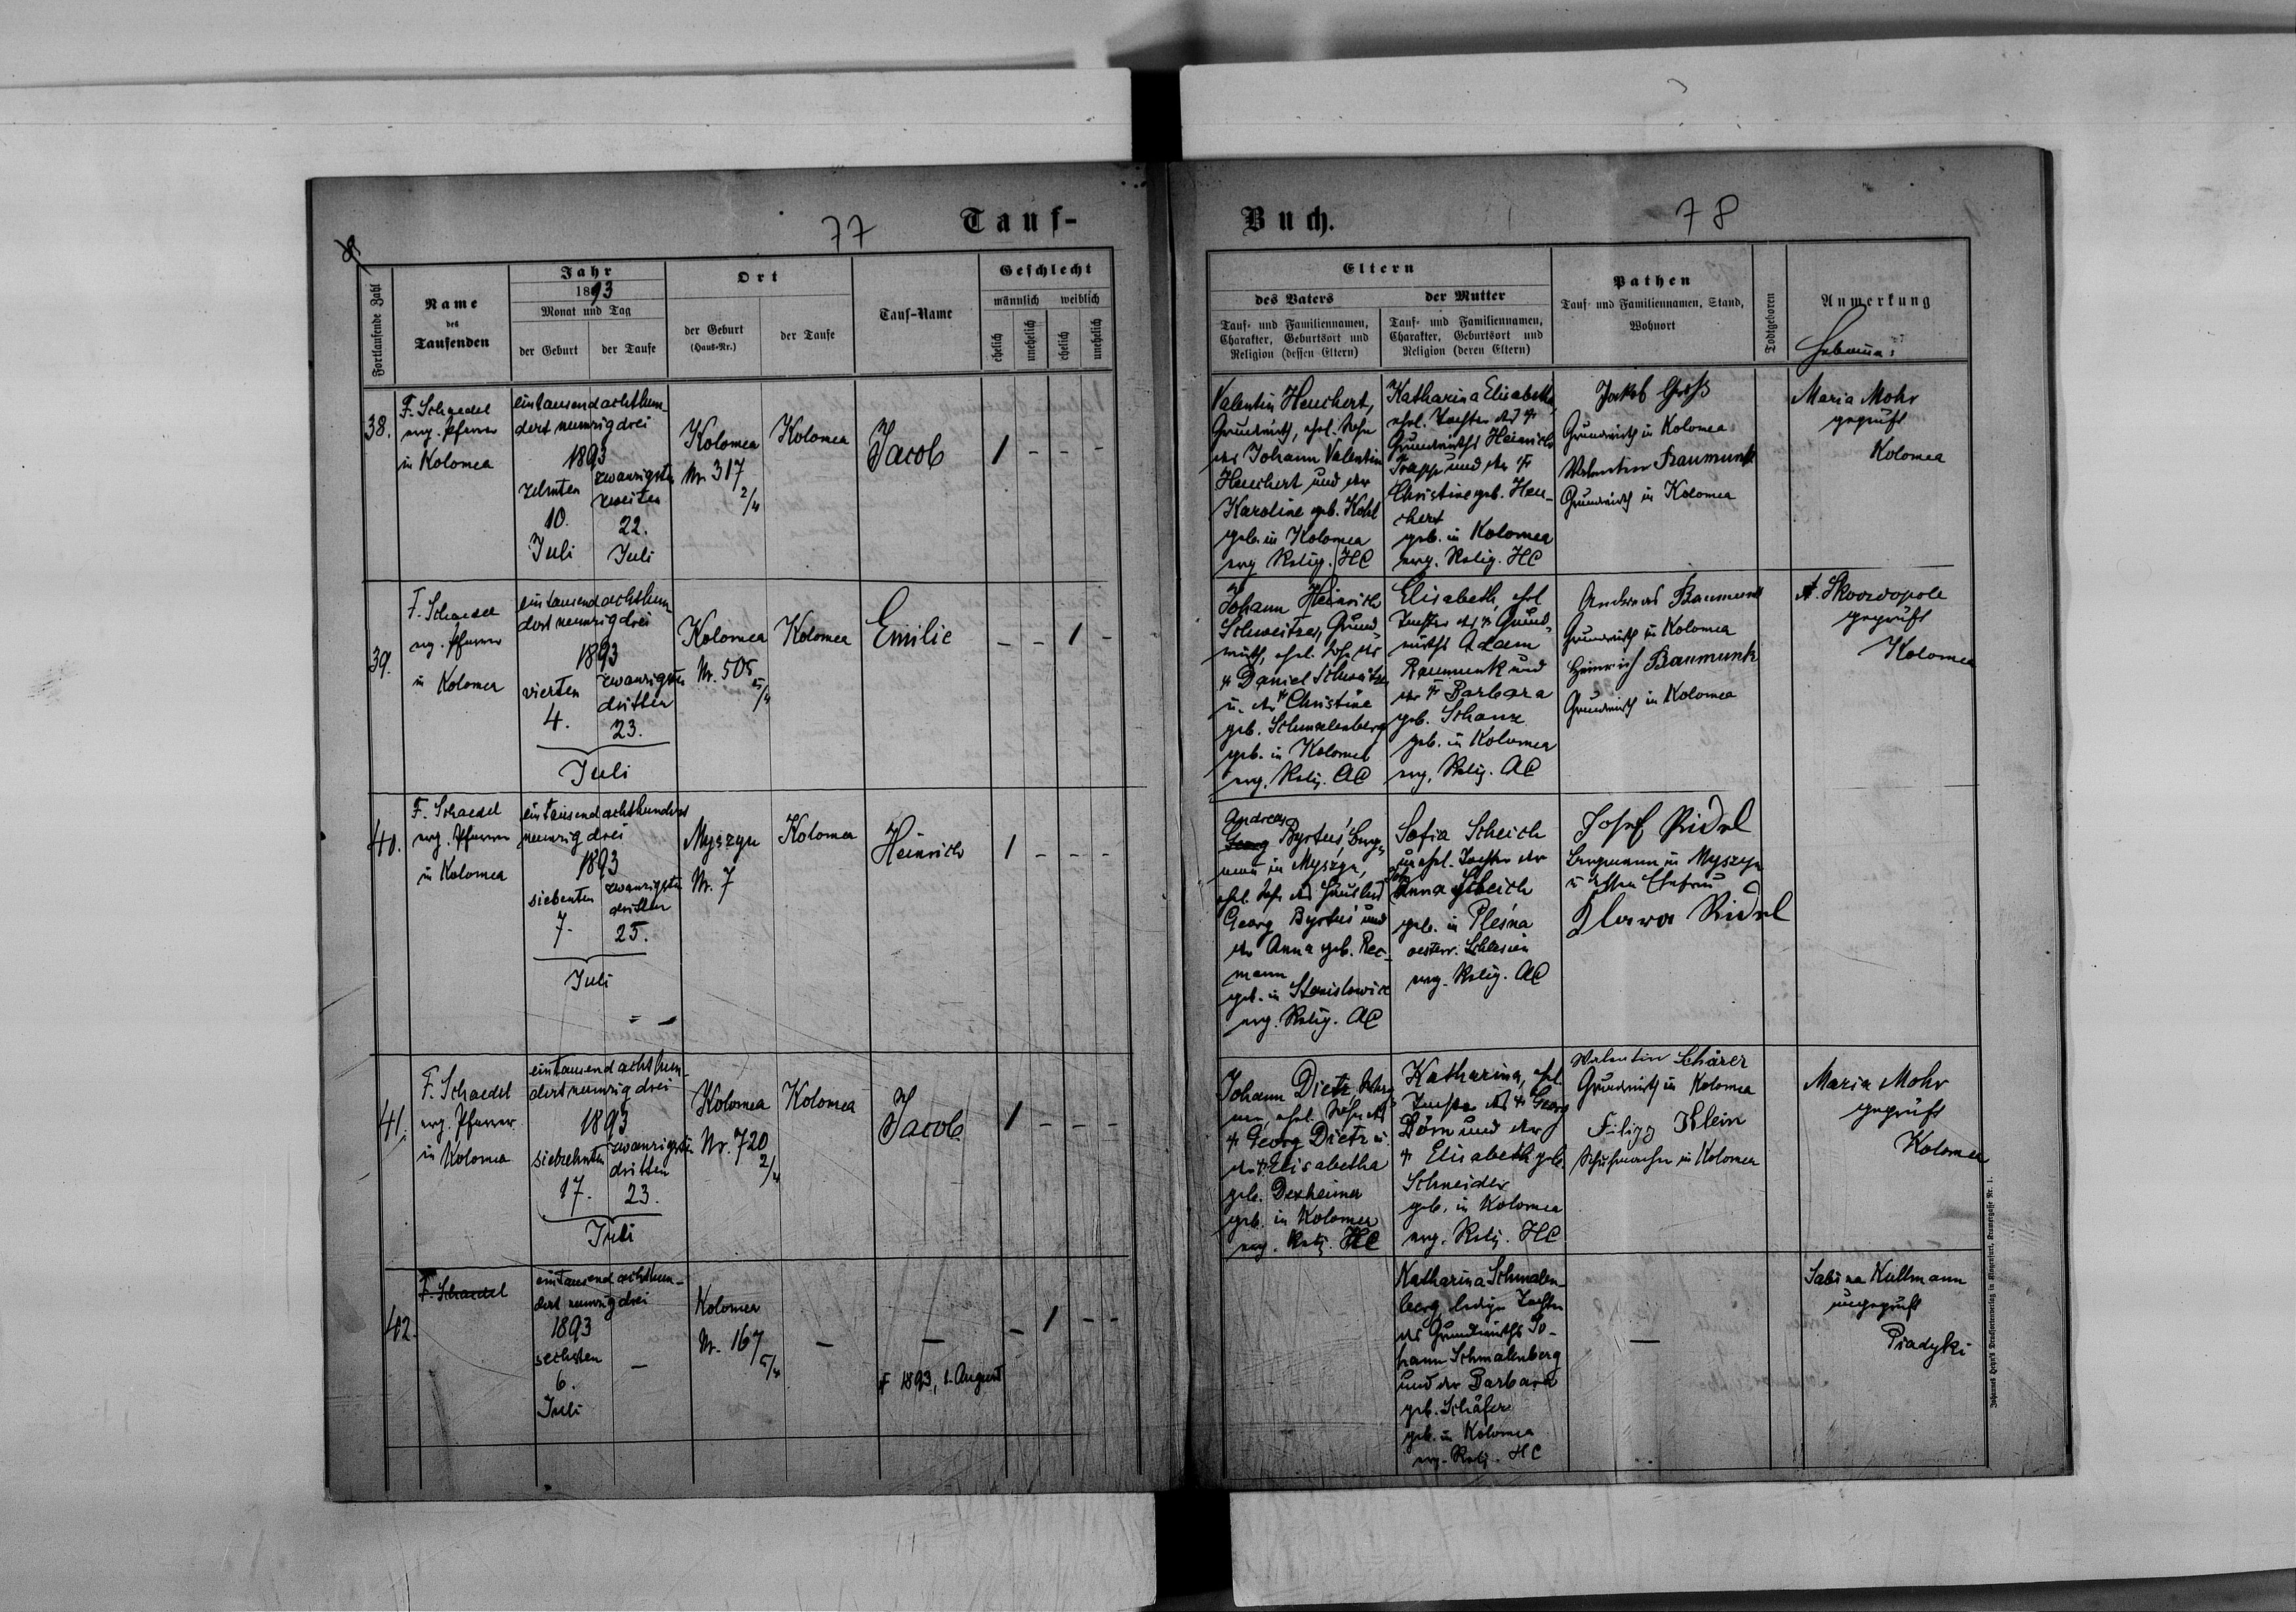 77
Tauf-
Fortlaufende Zahl
Name
des
Taufenden
Jahr
1893
Monat und Tag
der Geburt
der Taufe
Ort
der Geburt
(Haus-Nr.)
der Taufe
Tauf-Name
Geschlecht
männlich
weiblich
ehelich
unehelich
ehelich
unehelich
38.
F. Schaedel
evg. Pfarrer
in Kolomea
eintausendachthun-
dert neunzigdrei
1893
zehnten
10.
Juli
zwanzigsten
zweiten
22.
Juli
Kolomea
Nr. 317
2/4
Kolomea
Jacob
1 - - -
39.
F. Schaedel
evg. Pfarrer
in Kolomea
eintausendachthun
dert neunzigdrei
1893
vierten
4.
zwanzigsten
dritten
23.
Juli
Kolomea
Nr. 505
5/4
Kolomea
Emilie
- - 1 -
40.
F. Schaedel
evg. Pfarrer
in Kolomea
eintausendachthundert
neunzigdrei
1893
siebenten
7.
zwanzigsten
dritten
25.
Juli
Myszyn
Nr. 7
Kolomea
Heinrich
1 - - -
41.
F. Schaedel
evg. Pfarrer
in Kolomea
eintausendachthun-
dert neunzigdrei
1893
siebzehnten
17.
zwanzigsten
dritten
23.
Juli
Kolomea
Nr. 720
2/4
Kolomea
Jacob
1 - - -
42.
F. Schaedel
eintausendachthun-
dert neunzigdrei
1893
sechsten
6.
Juli
-
Kolomea
Nr. 167
5/4
-
-
† 1893, 1. August
- 1 - -
Buch.
78
Eltern
des Vaters
Tauf- und Familiennamen,
Charakter, Geburtsort und
Religion (dessen Eltern)
der Mutter
Tauf- und Familiennamen,
Charakter, Geburtsort und
Religion (deren Eltern)
Pathen
Tauf- und Familiennamen, Stand,
Wohnort
Todtgeboren
Anmerkung
Hebamme:
Valentin Heuchert,
Grundwirth, ehel. Sohn
des Johann Valentin
Heuchert und der
Karoline geb. Kohl
geb. in Kolomea
evg Relig. HC
Katharina Elisabeth,
ehel. Tochter des †
Grundwirths Heinrich
Trapp und der †
Christine geb. Heu-
chert
geb. in Kolomea
evg. Relig. HC
Jakob Groß
Grundwirth in Kolomea
Valentin Baumunk
Grundwirth in Kolomea
Maria Mohr
geprüft
Kolomea
Johann Heinrich
Schweitzer, Grund-
wirth, ehel. Sohn des
† Daniel Schweitzer
u. der † Christine
geb. Schmalenberg
geb. in Kolomea
evg. Relig. AC
Elisabeth, ehel
Tochter des † Grund-
wirths Adam
Baumunk und
der † Barbara
geb. Schanz
geb. in Kolomea
evg. Relig. AC
Andreas Baumunk
Grundwirth in Kolomea
Heinrich Baumunk
Grundwirth in Kolomea
A. Skworopole
geprüft
Kolomea
Andreas
Georg Byrtuś, Berg-
man in Myszyn,
ehel. Sohn des Häuslers
Georg Byrtuś und
der Anna geb. Rec-
mann
geb. in Stanislowice
evg. Relig. AC
Sofia Scheich
unehel. Tochter der
Anna Scheich
geb. in Pleśna
oesterr. Schlesien
evg. Relig. AC
Josef Ridel
Bergmann in Myszyn
u dessen Ehefrau
Klara Ridel
Johann Dietz,
ehel. Sohn des
† Georg Dietz u.
der † Elisabetha
geb. Dexheimer
geb. in Kolomea
evg. Relig. HC
Katharina, ehel.
Tochter des † Georg
Dörn und der
† Elisabeth geb.
Schneider
geb. in Kolomea
evg. Relig. HC
Valentin Schärer
Grundwirth in Kolomea
Filipp Klein
Schuhmacher in Kolomea
Maria Mohr
geprüft
Kolomea
Katharina Schmalen-
berg ledige Tochter
des Grundwirths Jo-
hann Schmalenberg
und der Barbara
geb. Schäfer
geb. in Kolomea
evg. Relig. HC
-
Sabina Kullmann
ungeprüft
Piadyki
Johannes Heyn's Drucksortenverlag in Klagenfurt, Kramergasse Nr. 1.